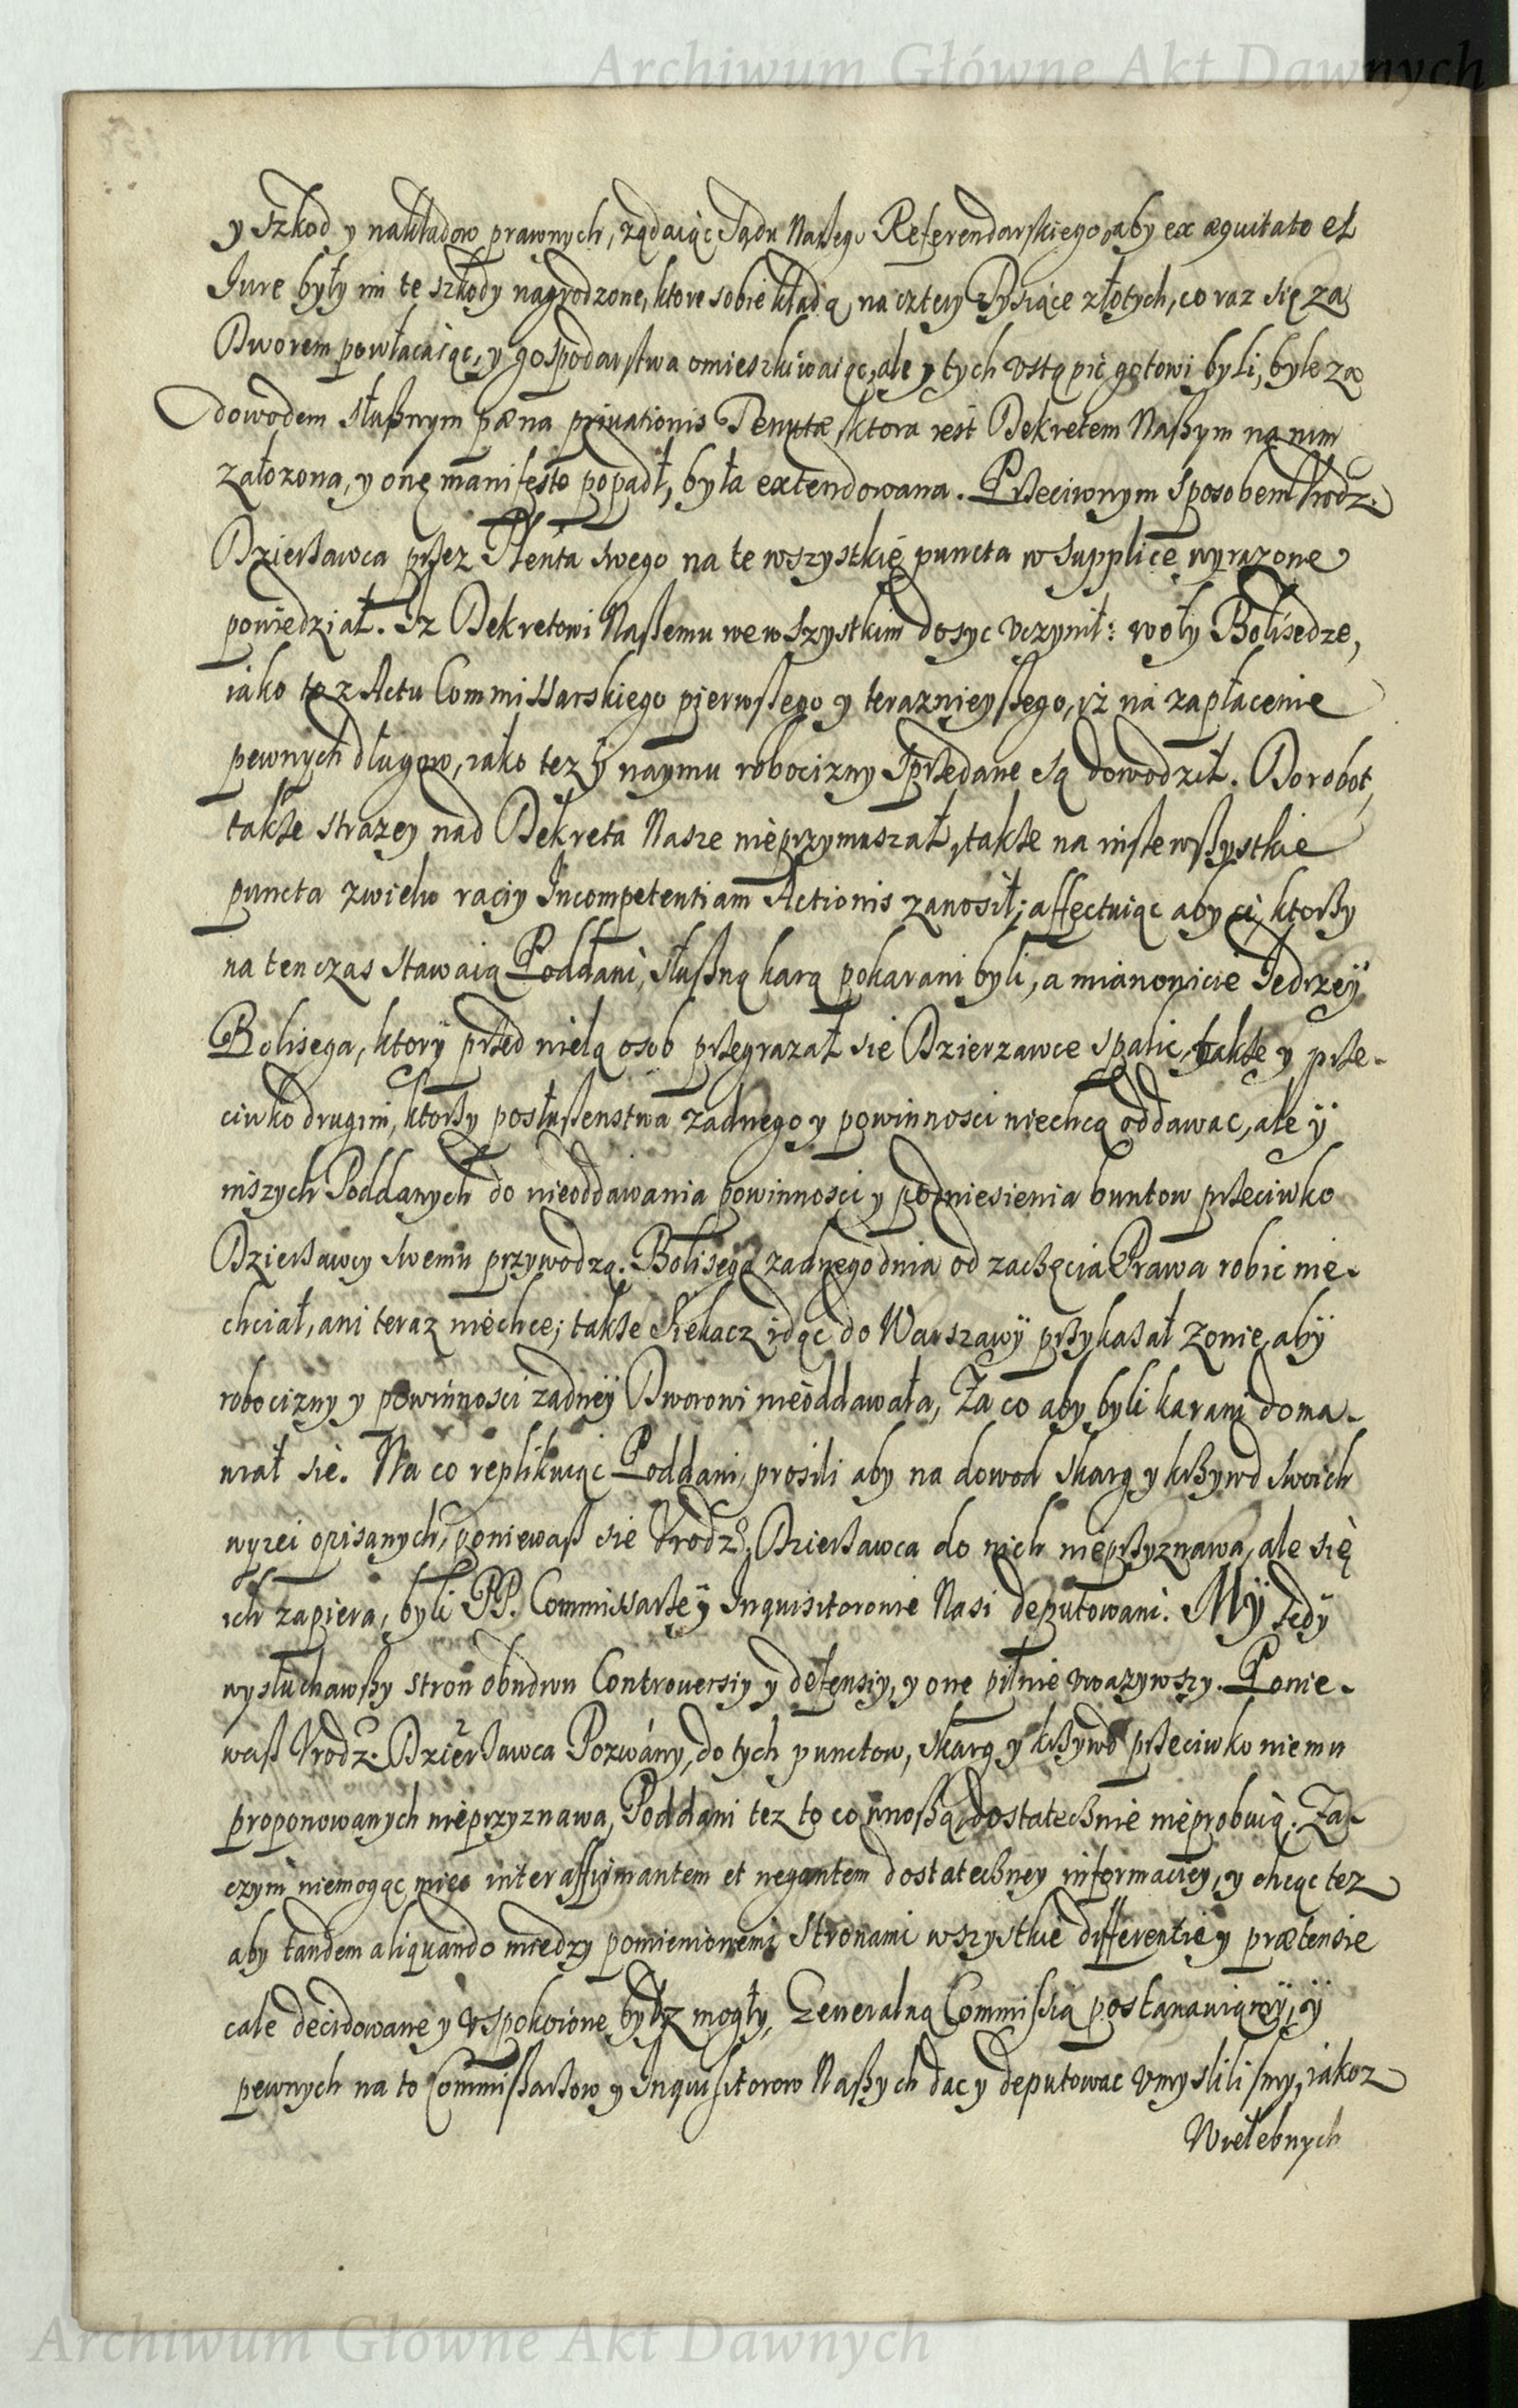 Archiwum Główne Akt Dawnych
y szkod y nakładow prawnych, ządaiąc Sądu Naszego Referendarskiego, aby ex æquitate et
Iure były im te szkody nagrodzone, ktore sobie kładą na cztery Tysiące złotych, co raz się za
Dworem powłacaiąc, y gospodarstwa omieszkiwaiąc, ale y tych vstąpić gotowi byli, byle za
dowodem słußnym pæna priuationis Tenutæ, ktora iest Dekretem Naßym na nim
załozona, y onę manifesto popadł, była extendowana. Przeciwnym sposobem Vrodz.
Dzierżawca przez Plenta swego na te wszystkie puncta w supplice wyrazone
powiedział. Iz Dekretowi Naßemu we wszystkim dosyc vczynił: woły Bolisedze,
iako to z Actu Commissarskiego pierwßego y terazniejßego, iż na zapłacenie
pewnych długow, iako tez y naymu robocizny sprzedane są dowodził. Do robot,
także strazey nad Dekreta Nasze nieprzymuszał, także na inße wßystkie
puncta zwielu raciy Incompetentiam Actionis zanosił; affectuiąc aby ci, ktorzy
na ten czas stawaią Poddani, słußną karą pokarani byli, a mianowicie Jedrzeÿ
Bolisega, ktorÿ przed wielą osob przegrazał sie Dzierzawce spalic, także y prze-
ciwko drugim, ktorzy posłußenstwa zadnego y powinnosci niechcą oddawac, ale ÿ
inszych Poddanych do nieoddawania powinnosci y podniesienia buntow przeciwko
Dzierżawcy swemu przywodzą. Bolisega zadnego dnia od zaczęcia Prawa robic nie-
chciał, ani teraz niechce; także Siekacz idąc do Warszawÿ przykazał zonie, abÿ
robocizny y powinnosci zadnëÿ Dworowi nieoddawała, Za co aby byli karani doma-
wiał sie. Na co replikuiąc Poddani, prosili aby na dowod skarg y krzywd swoich
wyzei opisanych, poniewaß sie Vrodz. Dzierżawca do nich nieprzyznawa, ale się
ich zapiera, byli PP. Commissarze ÿ Inquisitorowie Nasi deputowani. MY tedÿ
wysłuchawßy stron obudwu Controuersiy y defensiy, y one pilnie vwazywszy. Ponie-
waß Vrodz. Dzierżawca Pozwány, do tych punctow, skarg y krzywd przeciwko niemu
proponowanych nieprzyznawa, Poddani tez to co wnoßą, dostatecznie nieprobuią; Za-
czym niemogąc miec inter affirmantem et negantem dostateczney informaciey, y chcąc tez
aby tandem aliquando miedzy pomienionemi Stronami wszystkie differentie y prætensie
cale decidowane y vspokoione bydz mogły, Generalną Commissią postanawiamÿ, ÿ
pewnych na to Commißarzow y Inquisitorow Naßych dac y deputowac vmyslilismy, iakoz
Wielebnych
Archiwum Główne Akt Dawnych